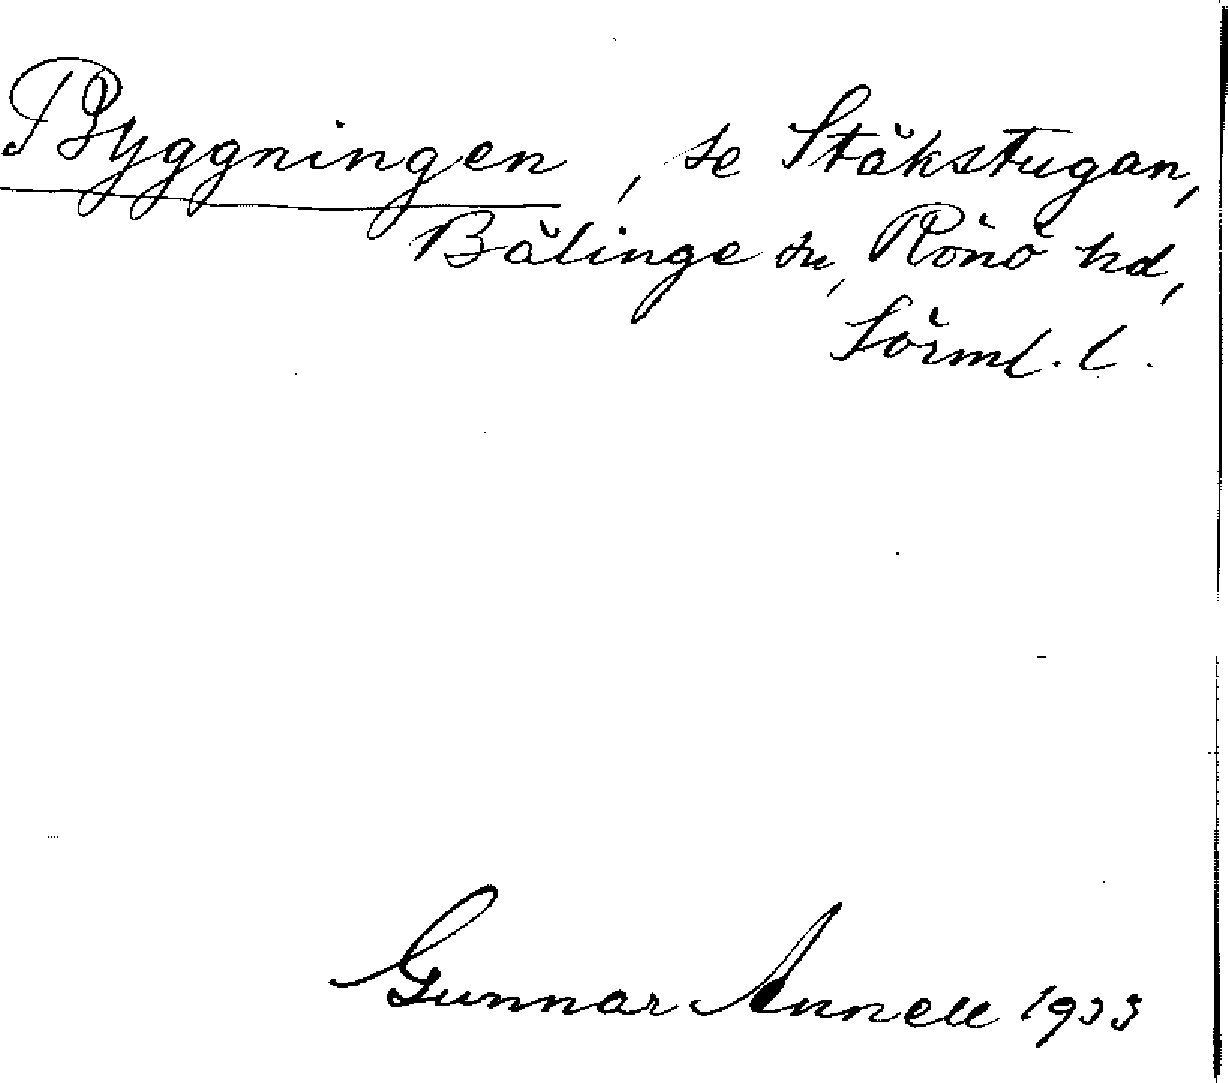 Byggningen, se Stäkstugan,
Bälinge sn, Rönö hd,
Sörml. l.
Gunnar Annell 1933